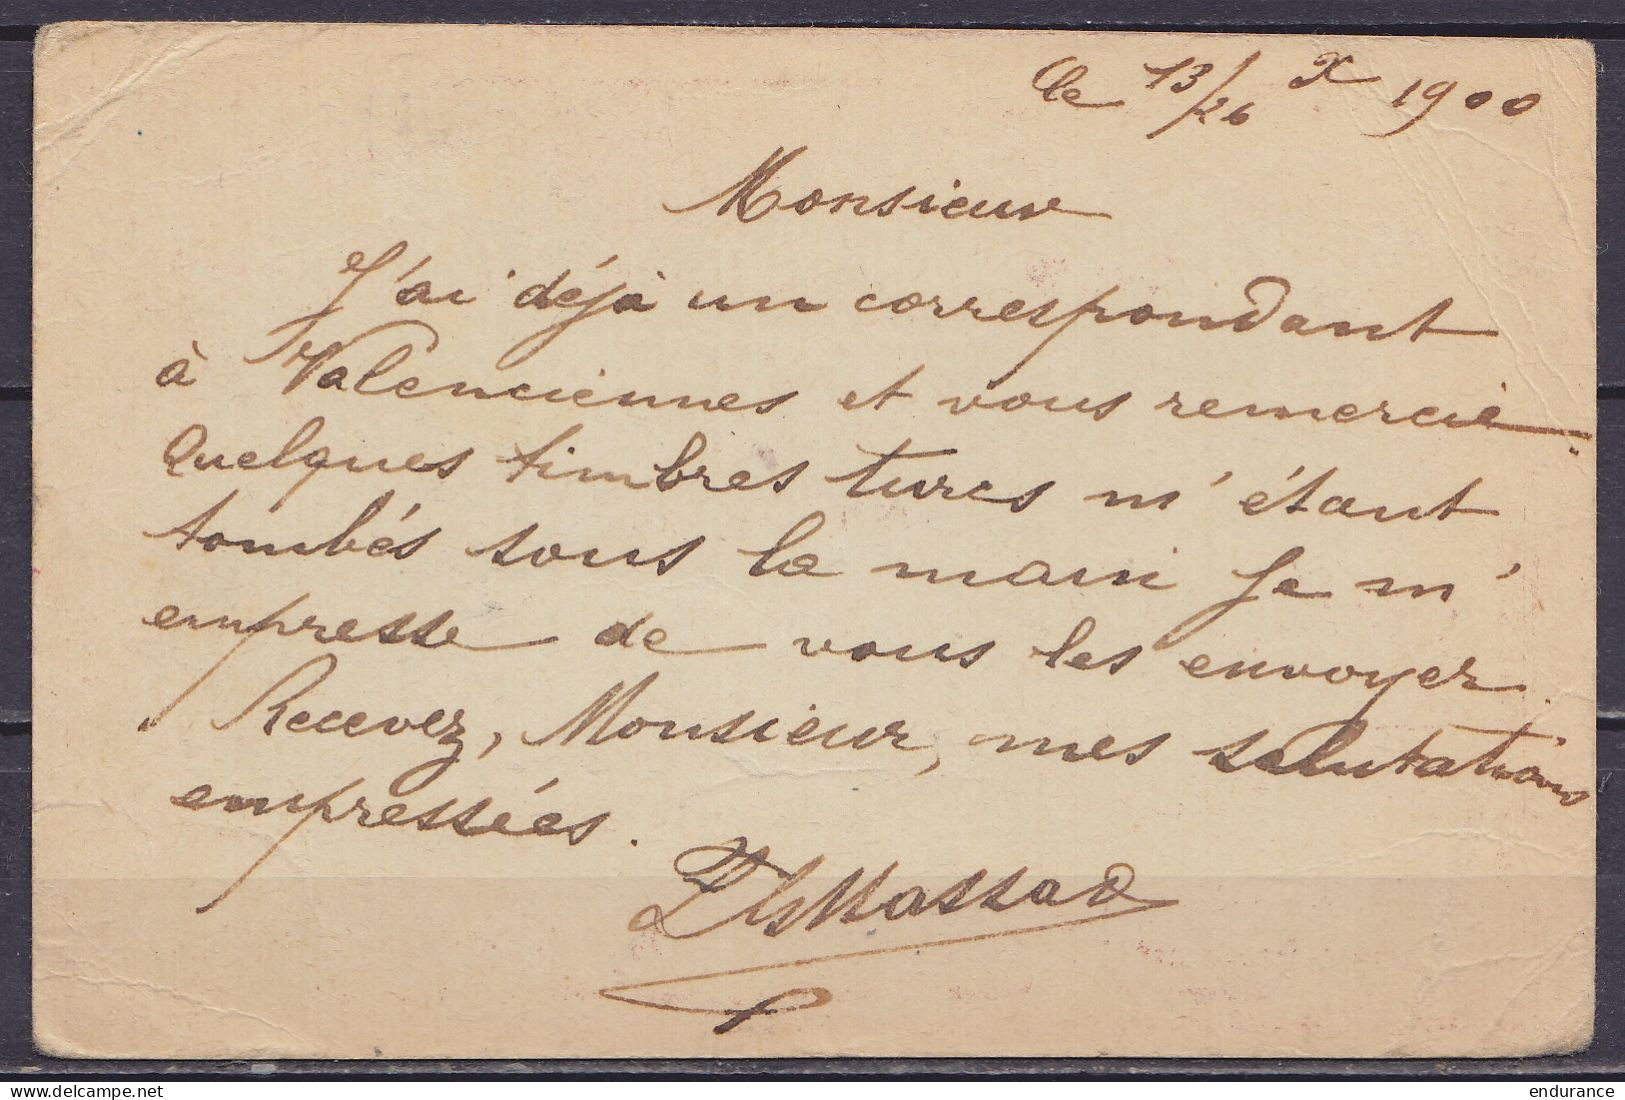 le 13/26 X 1900
Monsieur
J'ai déjà un correspondant
à Valenciennes et vous remercie.
Quelques timbres turcs m'étant
tombés sous la main je m'
empresse de vous les envoyer.
Recevez, Monsieur, mes salutations
empressées.
endurance